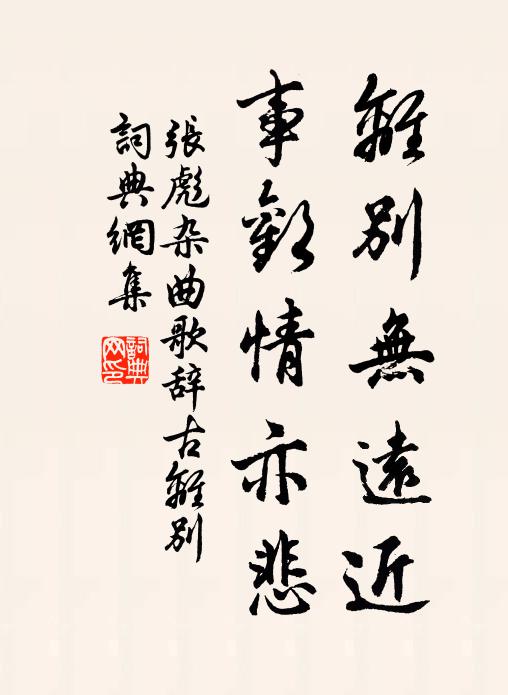 離別無遠近
事歡情亦悲
張彪杂曲歌辞古離別
詞典網集
詞典网印